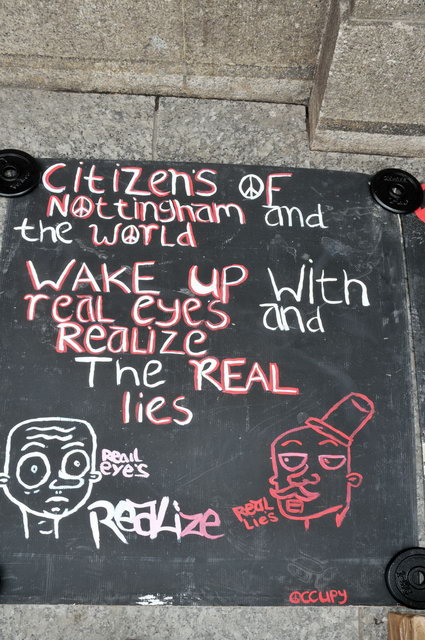 Citizen's OF
Nottingham and
the world
WAKE up With
real eye's and
REALIZE
The REAL
lies
Reail
eye's
Realize
REAL
LIES
OCCUPY